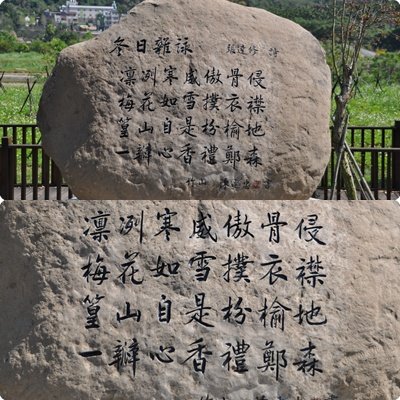 冬日雜詠 張達修 詩
凜冽寒威傲骨侵
梅花如雪撲衣襟
篁山自是枌榆地
一瓣心香禮鄭森
竹山 書
凜冽寒威傲骨侵
梅花如雪撲衣襟
篁山自是枌榆地
一瓣心香禮鄭森